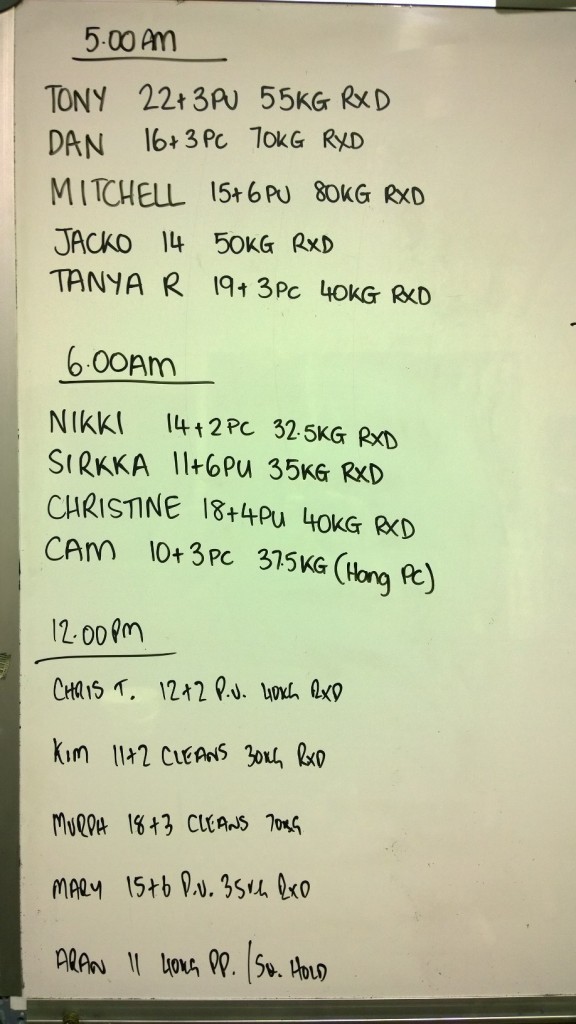 5.00AM
TONY 22+3PU 55KG RXD
DAN 16+3PC 70KG RXD
MITCHELL 15+6PU 80KG RXD
JACKO 14 50KG RXD
TANYA R 19+3PC 40KG RXD
6.00AM
NIKKI 14+2PC 32.5KG RXD
SIRKKA 11+6PU 35KG RXD
CHRISTINE 18+4PU 40KG RXD
CAM 10+3PC 37.5KG (Hang PC)
12.00PM
CHRIS T. 12+2 P.U. 40KG RXD
KIM 11+2 CLEANS 30KG RXD
MURPH 18+3 CLEANS 70KG
MARY 15+6 P.U. 35KG RXD
ARAN 11 40KG PP. / SQ. HOLD